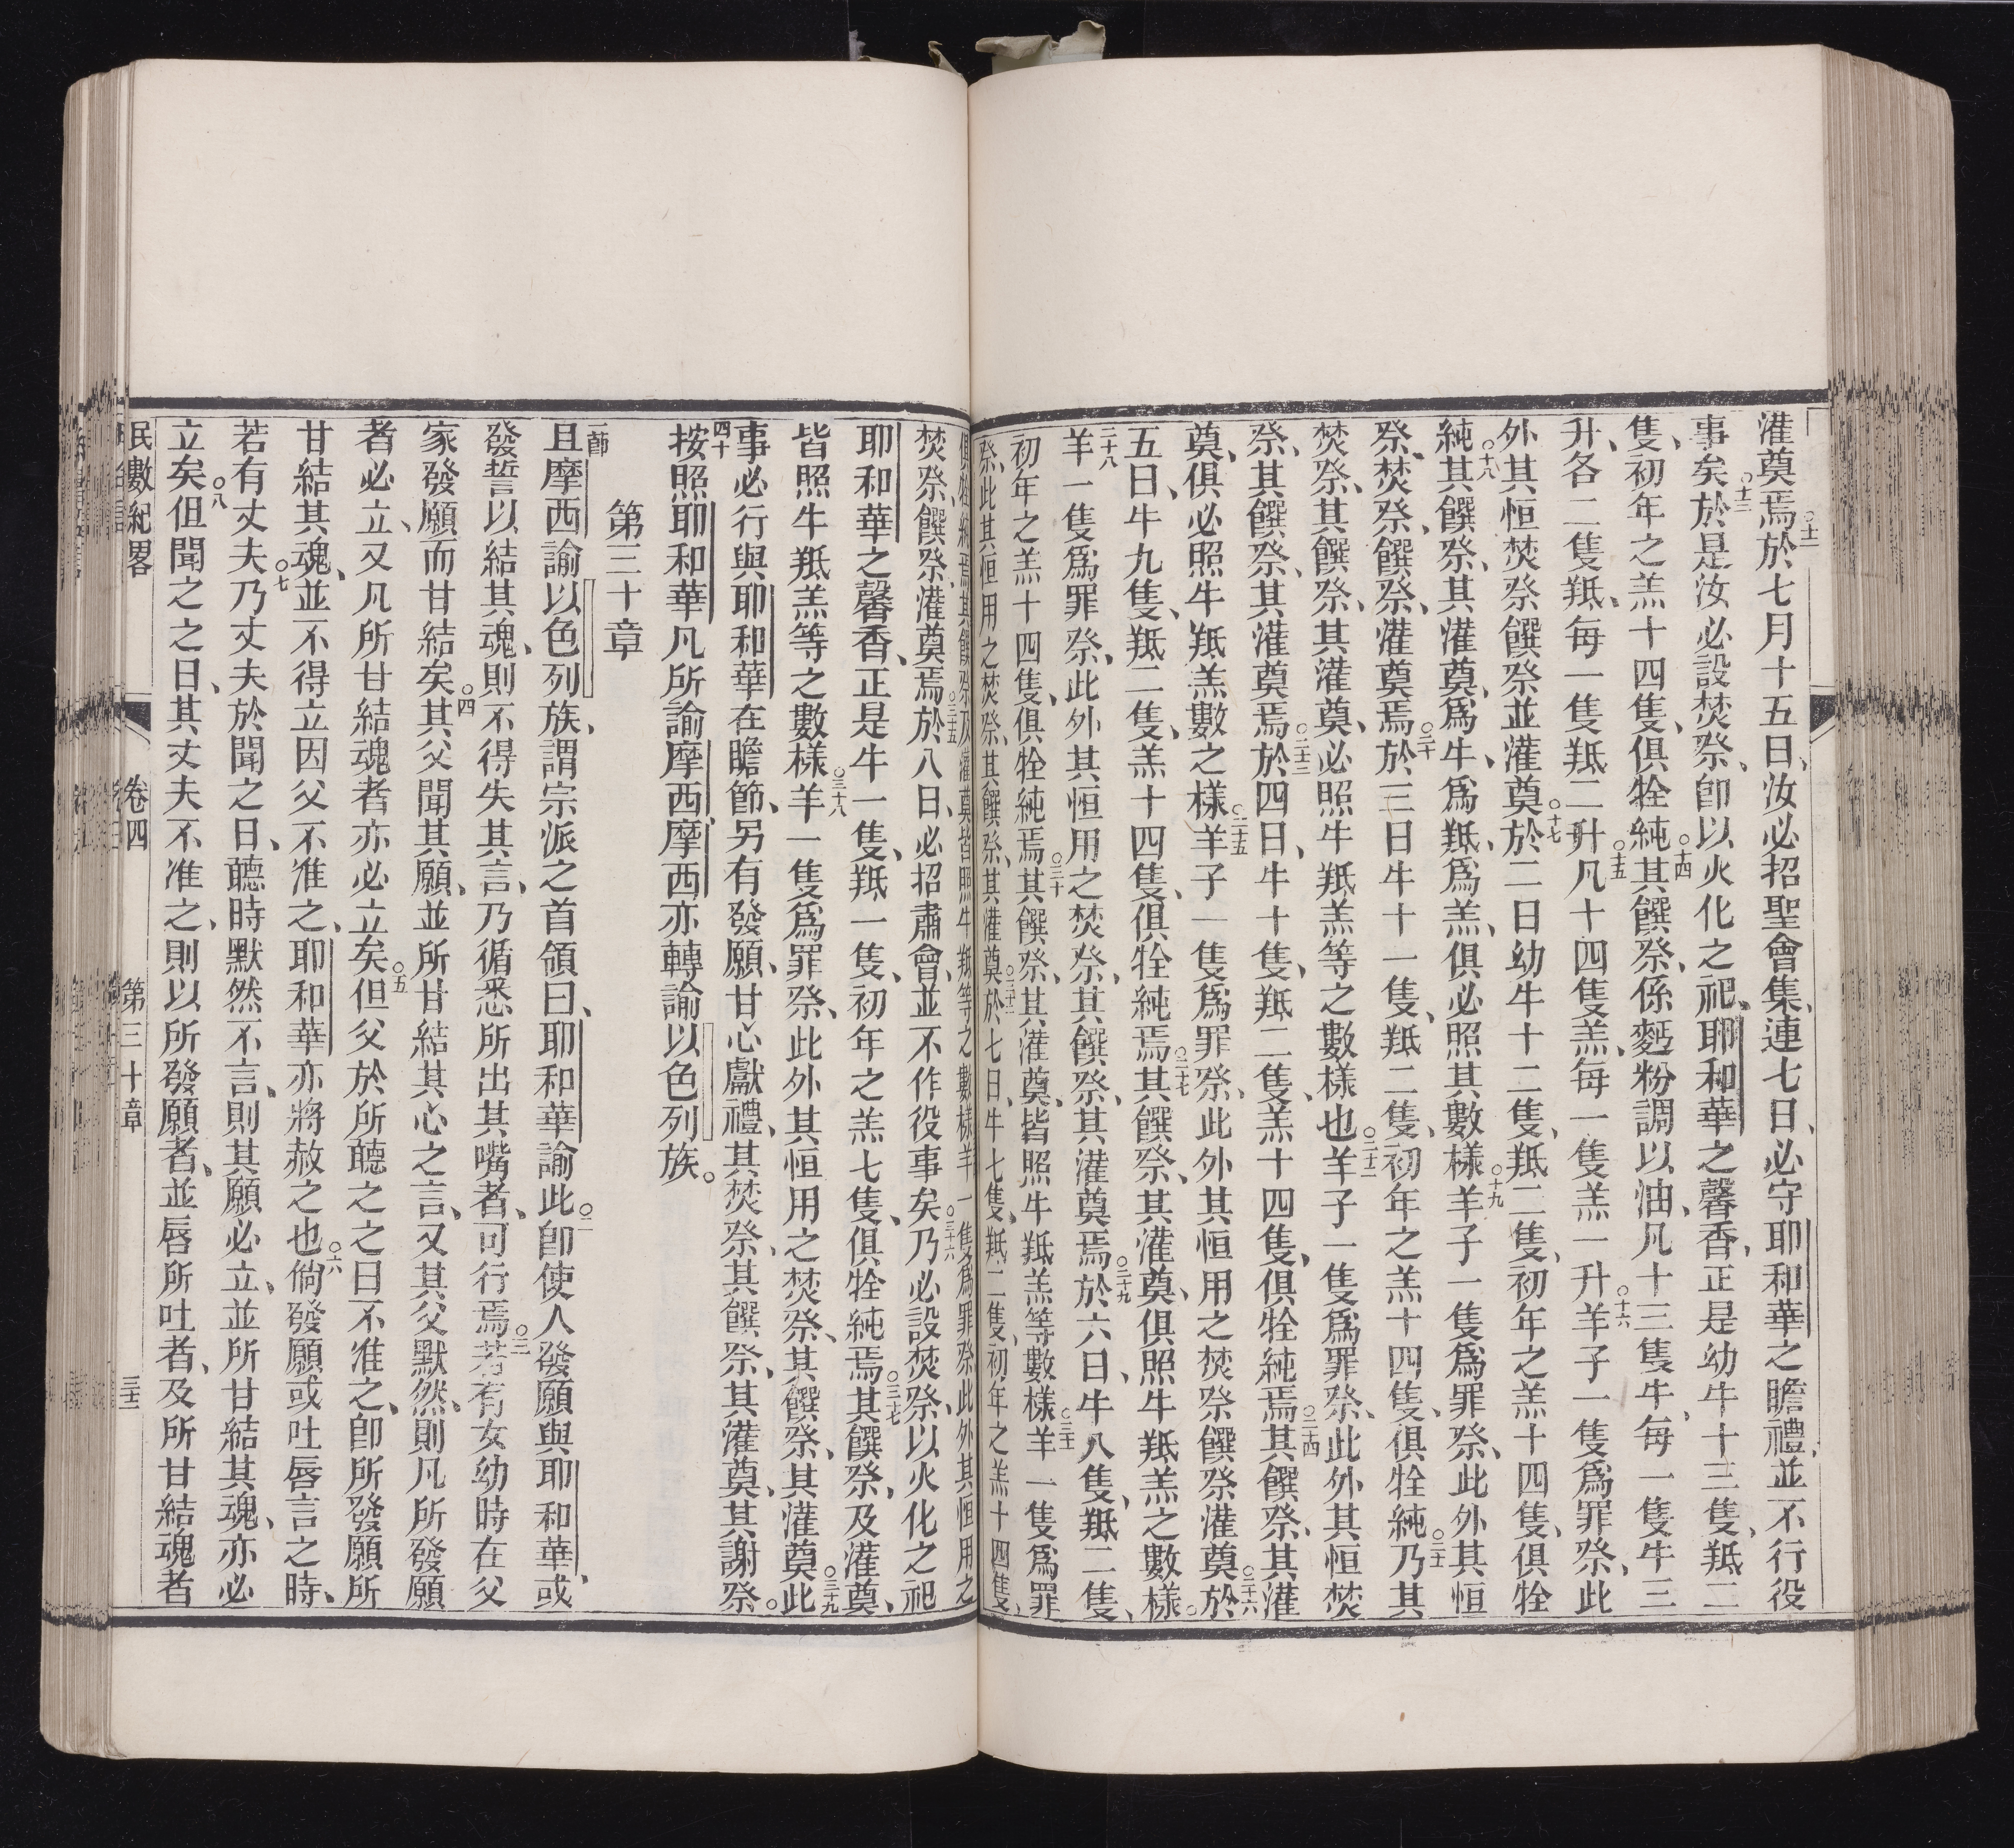 灌奠焉○十二於七月十五日、汝必招聖會集、連七日、必守耶和華之瞻禮、並不行役
事矣○十三於是汝必設焚祭、卽以火化之祀、耶和華之馨香、正是幼牛十三隻、羝二
隻、初年之羔十四隻、俱牷純○十四其饌祭、係麪粉調以油、凡十三隻牛、每一隻牛三
升、各二隻羝、每一隻羝二升○十五凡十四隻羔、每一隻羔一升○十六羊子一隻爲罪祭、此
外其恒焚祭饌祭並灌奠○十七於二日幼牛十二隻、羝二隻、初年之羔十四隻、俱牷
純○十八其饌祭、其灌奠、爲牛、爲羝、爲羔、俱必照其數樣○十九羊子一隻爲罪祭、此外其恒
祭、焚祭、饌祭、灌奠焉○二十於三日牛十一隻、羝二隻、初年之羔十四隻、俱牷純○二十一乃其
焚祭、其饌祭、其灌奠、必照牛羝羔等之數樣也○二十二羊子一隻爲罪祭、此外其恒焚
祭、其饌祭、其灌奠焉○二十三於四日、牛十隻、羝二隻、羔十四隻、俱牷純焉○二十四其饌祭、其灌
奠、俱必照牛羝羔數之樣○二十五羊子一隻爲罪祭、此外其恒用之焚祭饌祭灌奠○二十六於
五日、牛九隻、羝二隻、羔十四隻、俱牷純焉○二十七其饌祭、其灌奠、俱照牛羝羔之數樣。
二十八羊一隻爲罪祭、此外其恒用之焚祭、其饌祭、其灌奠焉○二十九於六日、牛八隻、羝二隻、
初年之羔十四隻、俱牷純焉○三十其饌祭、其灌奠、皆照牛羝羔等數樣○三十一羊一隻爲罪
祭、此其恒用之焚祭、其饌祭、其灌奠○三十二於七日、牛七隻、羝二隻、初年之羔十四隻、
俱牷純焉其饌祭及灌奠皆照牛羝等之數樣羊一隻爲罪祭此外其恒用之
焚祭、饌祭、灌奠焉○三十五於八日、必招肅會、並不作役事矣○三十六乃必設焚祭、以火化之祀
耶和華之馨香、正是牛一隻、羝一隻、初年之羔七隻、俱牷純焉○三十七其饌祭、及灌奠、
皆照牛羝羔等之數樣○三十八羊一隻爲罪祭、此外其恒用之焚祭、其饌祭、其灌奠○三十九此
事必行與耶和華在瞻節、另有發願、甘心獻禮、其焚祭、其饌祭、其灌奠、其謝祭。
四十按照耶和華凡所諭摩西、摩西亦轉諭以色列族。
第三十章
一節且摩西諭以色列族、謂宗派之首領曰、耶和華諭此○二卽使人發願與耶和華、或
發誓以結其魂、則不得失其言、乃循悉所出其嘴者、可行焉○三若有女幼時在父
家發願而甘結矣○四其父聞其願、並所甘結其心之言、又其父默然、則凡所發願
者必立、又凡所甘結魂者亦必立矣○五但父於所聽之之日不准之、卽所發願所
甘結其魂、並不得立因父不准之、耶和華亦將赦之也○六倘發願或吐唇言之時、
若有丈夫○七乃丈夫於聞之日、聽時默然不言、則其願必立、並所甘結其魂、亦必
立矣○八但聞之之日、其丈夫不准之、則以所發願者、並唇所吐者、及所甘結魂者
民數紀畧 卷四 第三十章 三十三